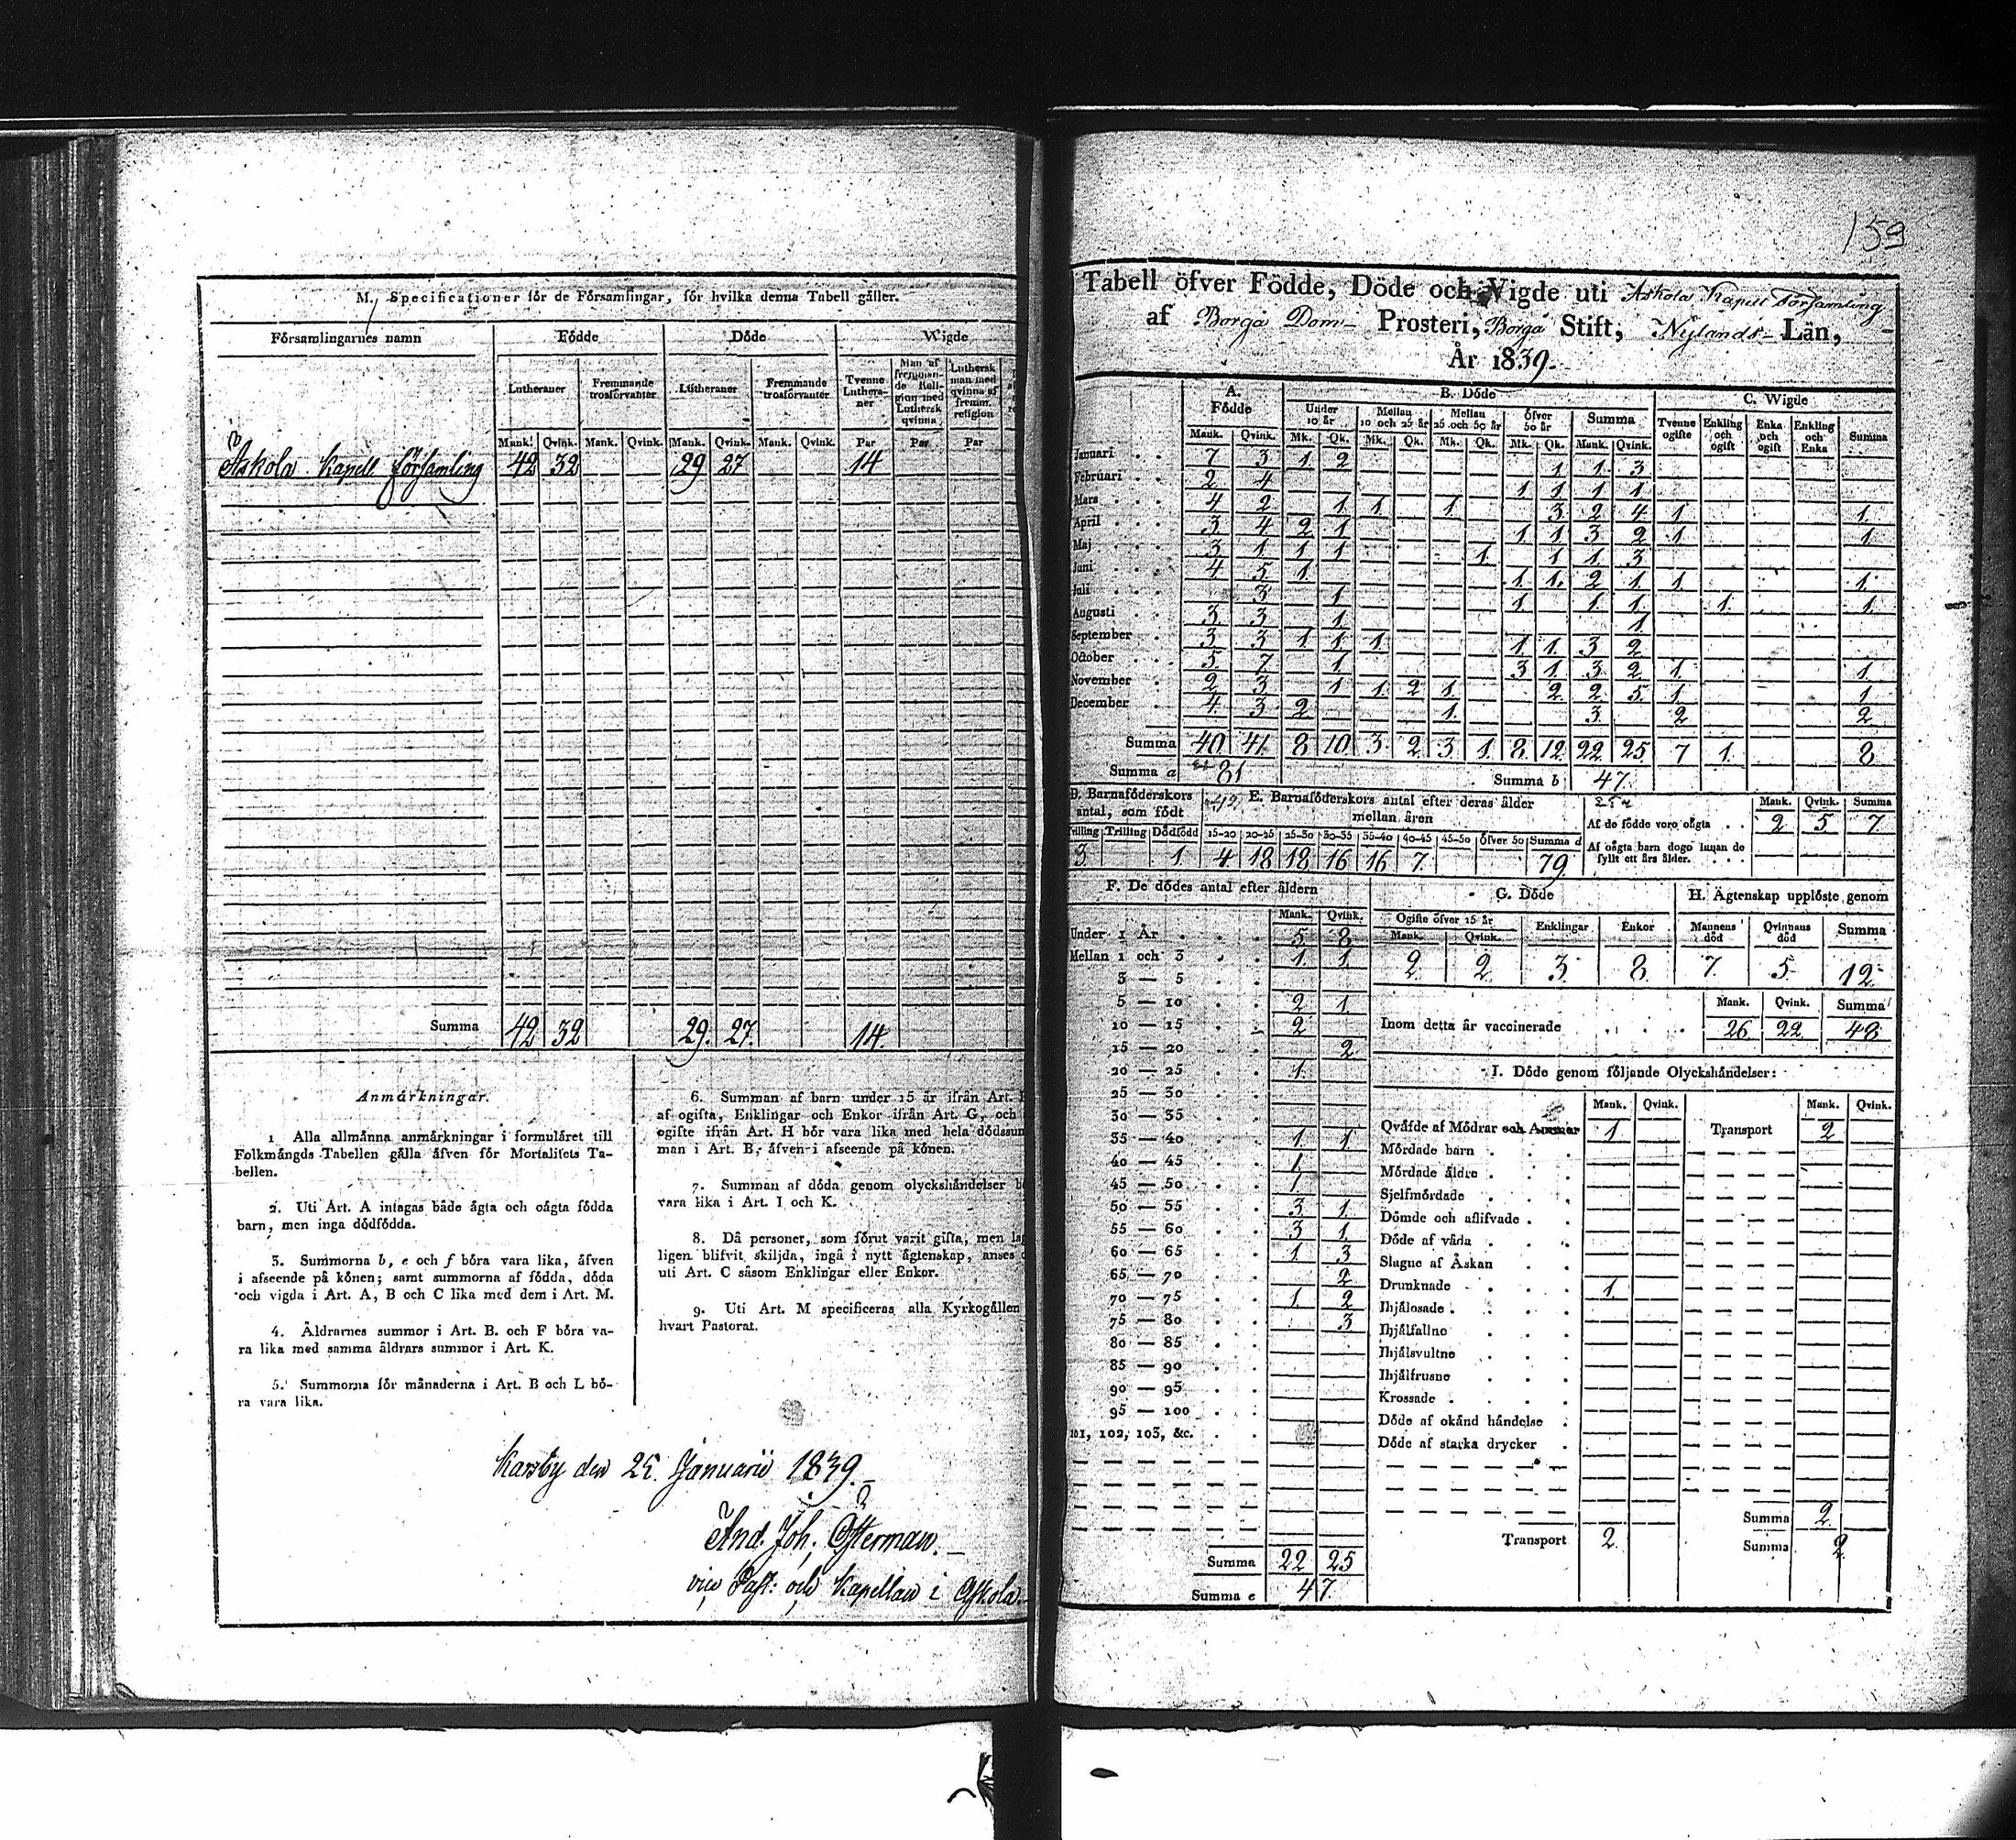 M. Specificationer för de Församlingar, för hvilka denna Tabell gäller.
Församlingarnes namn Födde Döde Wigde
Lutheraner Fremmande trosförvanter Lutheraner Fremmande trosförvanter Tvenne Lutheraner Man af fremmande Religion med Luthersk qvinna Luthersk man med qvinna af fremm. religion
Mank. Qvink. Mank. Qvink. Mank. Qvink. Mank. Qvink. Par Par Par
Askola Kapell församling 42 32 29 27 14
Summa 42 32 29. 27. 14.
Anmärkningar.
1 Alla allmänna anmärkningar i formuläret till
Folkmängds Tabellen gälla äfven för Mortalitets Ta-
bellen.
2. Uti Art. A intagas både ägta och oägta födda
barn, men inga dödfödda.
3. Summorna b, e och f böra vara lika, äfven
i afseende på könen; samt summorna af födda, döda
och vigda i Art. A, B och C lika med dem i Art. M.
4. Äldrarnes summor i Art. B. och F böra va-
ra lika med samma åldrars summor i Art. K.
5. Summorna för månaderna i Art. B och L bö-
ra vara lika.
6. Summan af barn under 15 år ifrån Art.
af ogifta, Enklingar och Enkor ifrån Art. G, och
ogifte ifrån Art. H bör vara lika med hela dödssum
man i Art. B, äfven i afseende på könen.
7. Summan af döda genom olyckshändelser
vara lika i Art. I och K.
8. Då personer, som förut varit gifta, men
ligen blifvit skiljda, ingå i nytt ägtenskap, anses
uti Art. C såsom Enklingar eller Enkor.
9. Uti Art. M specificeras alla Kyrkogällen
hvart Pastorat.
Karsby den 25. Januarii 1839.
And. Joh. Osterman.
vice Past: och Kapellan i Askola.
159
Tabell öfver Födde, Döde och Vigde uti Askola Kapell Församling
af Borgå Dom- Prosteri, Borgå Stift, Nylands- Län,
År 1839.
A. Födde B. Döde C. Wigde
Under 10 år Mellan 10 och 25 år Mellan 25 och 50 år Öfver 50 år Summa Tvenne ogifte Enkling och ogift Enka och ogift Enkling och Enka Summa
Mank. Qvink. Mk. Qk. Mk. Qk. Mk. Qk. Mk. Qk. Mank. Qvink.
Januari 7 3 1 2 1 1 3
Februari 2 4 1 1 1 1
Mars 4 2 1 1 1 3 2 4 1 1
April 3 4 2 1 1 1 3 2 1 1
Maj 3 1 1 1 1 1 1 3
Juni 4 5 1 1 1 2 1 1 1
Juli 3 1 1 1 1 1 1
Augusti 3 3 1 1
September 3 3 1 1 1 1 1 3 2
October 5 7 1 3 1 3 2 1 1
November 2 3 1 1 2 1 2 2 5 1 1
December 4 3 2 1 3 2 2
Summa 40 41 8 10 3 2 3 1 8 12 22 25 7 1 8
Summa a 81 Summa b 47.
D. Barnaföderskors antal, som födt
Tvilling Trilling Dödfödd
3 1
E. Barnaföderskors antal efter deras ålder
mellan åren
15-20 20-25 25-30 30-35 35-40 40-45 45-50 öfver 50 Summa d
4 18 18 16 16 7. 79
Mank. Qvink. Summa
Af de födde voro oägta 2 5 7
Af oägta barn dogo innan de
fyllt ett års ålder.
F. De dödes antal efter åldern
Mank. Qvink.
Under 1 År 5 8
Mellan 1 och 3 1 1
3 — 5
5 — 10 2 1
10 — 15 2
15 — 20 2
20 — 25 1
25 — 30
30 — 35
35 — 40 1 1
40 — 45 1
45 — 50 1
50 — 55 3 1
55 — 60 3 1
60 — 65 1 3
65 — 70 2
70 — 75 1 2
75 — 80 3
80 — 85
85 — 90
90 — 95
95 — 100
101, 102, 103, &c.
Summa 22 25
Summa e 47.
G. Döde
Ogifte öfver 15 år Enklingar Enkor
Mank. Qvink.
2 2 3 8
H. Ägtenskap upplöste genom
Mannens död Qvinnans död Summa
7 5 12
Mank. Qvink. Summa
Inom detta år vaccinerade 26 22 48
I. Döde genom följande Olyckshändelser:
Mank. Qvink. Mank. Qvink.
Qväfde af Mödrar och Ammor 1 Transport 2
Mördade barn
Mördade äldre
Sjelfmördade
Dömde och aflifvade
Döde af våda
Slagne af Åskan
Drunknade 1
Ihjälosade
Ihjälfallne
Ihjälsvultne
Ihjälfrusne
Krossade
Döde af okänd händelse
Döde af starka drycker
Summa 2
Transport 2 Summa 2